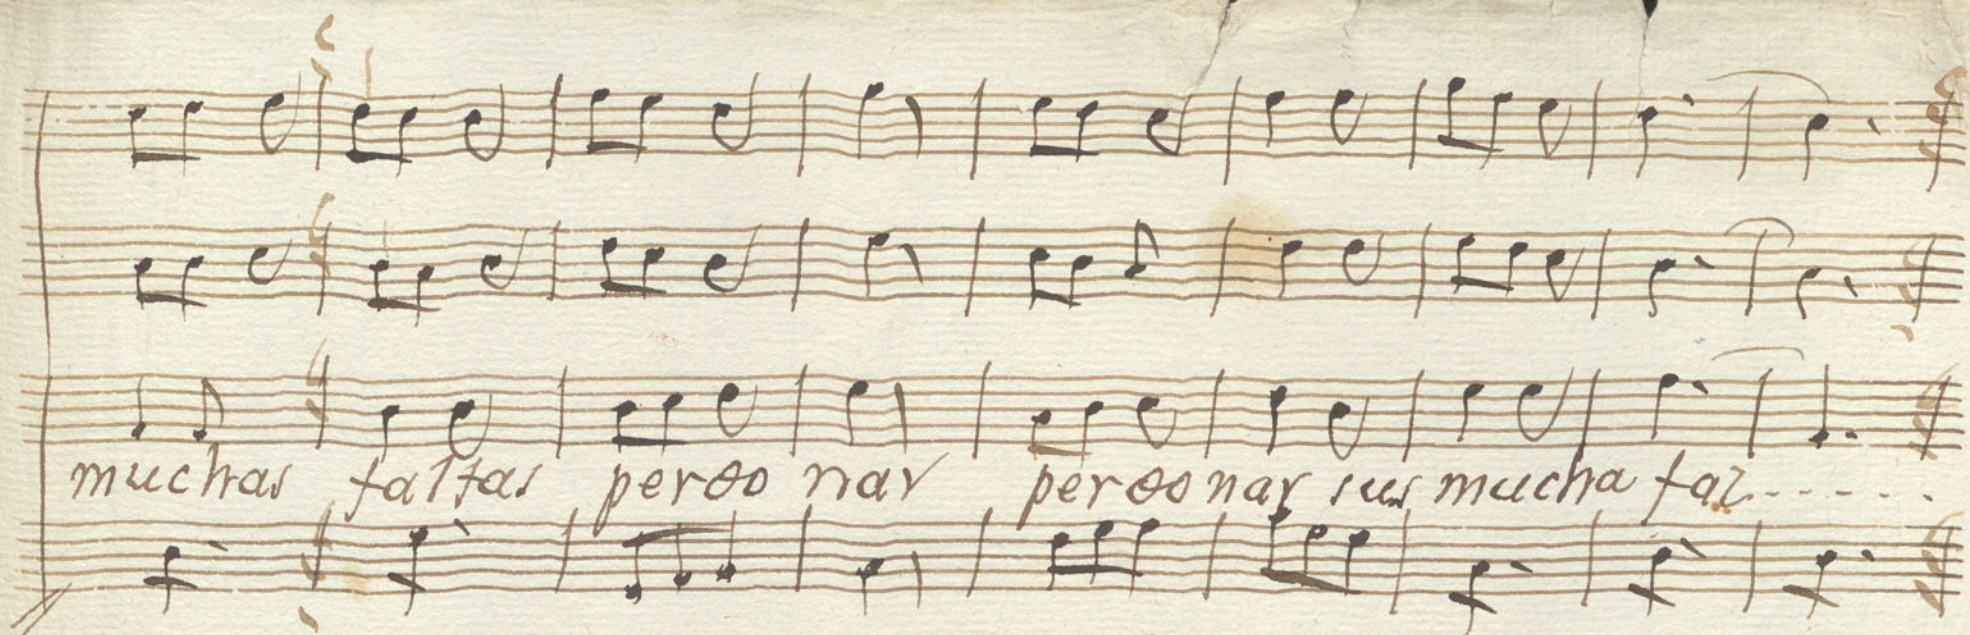 muchas faltas perdo nar perdonar sus mucha fal......